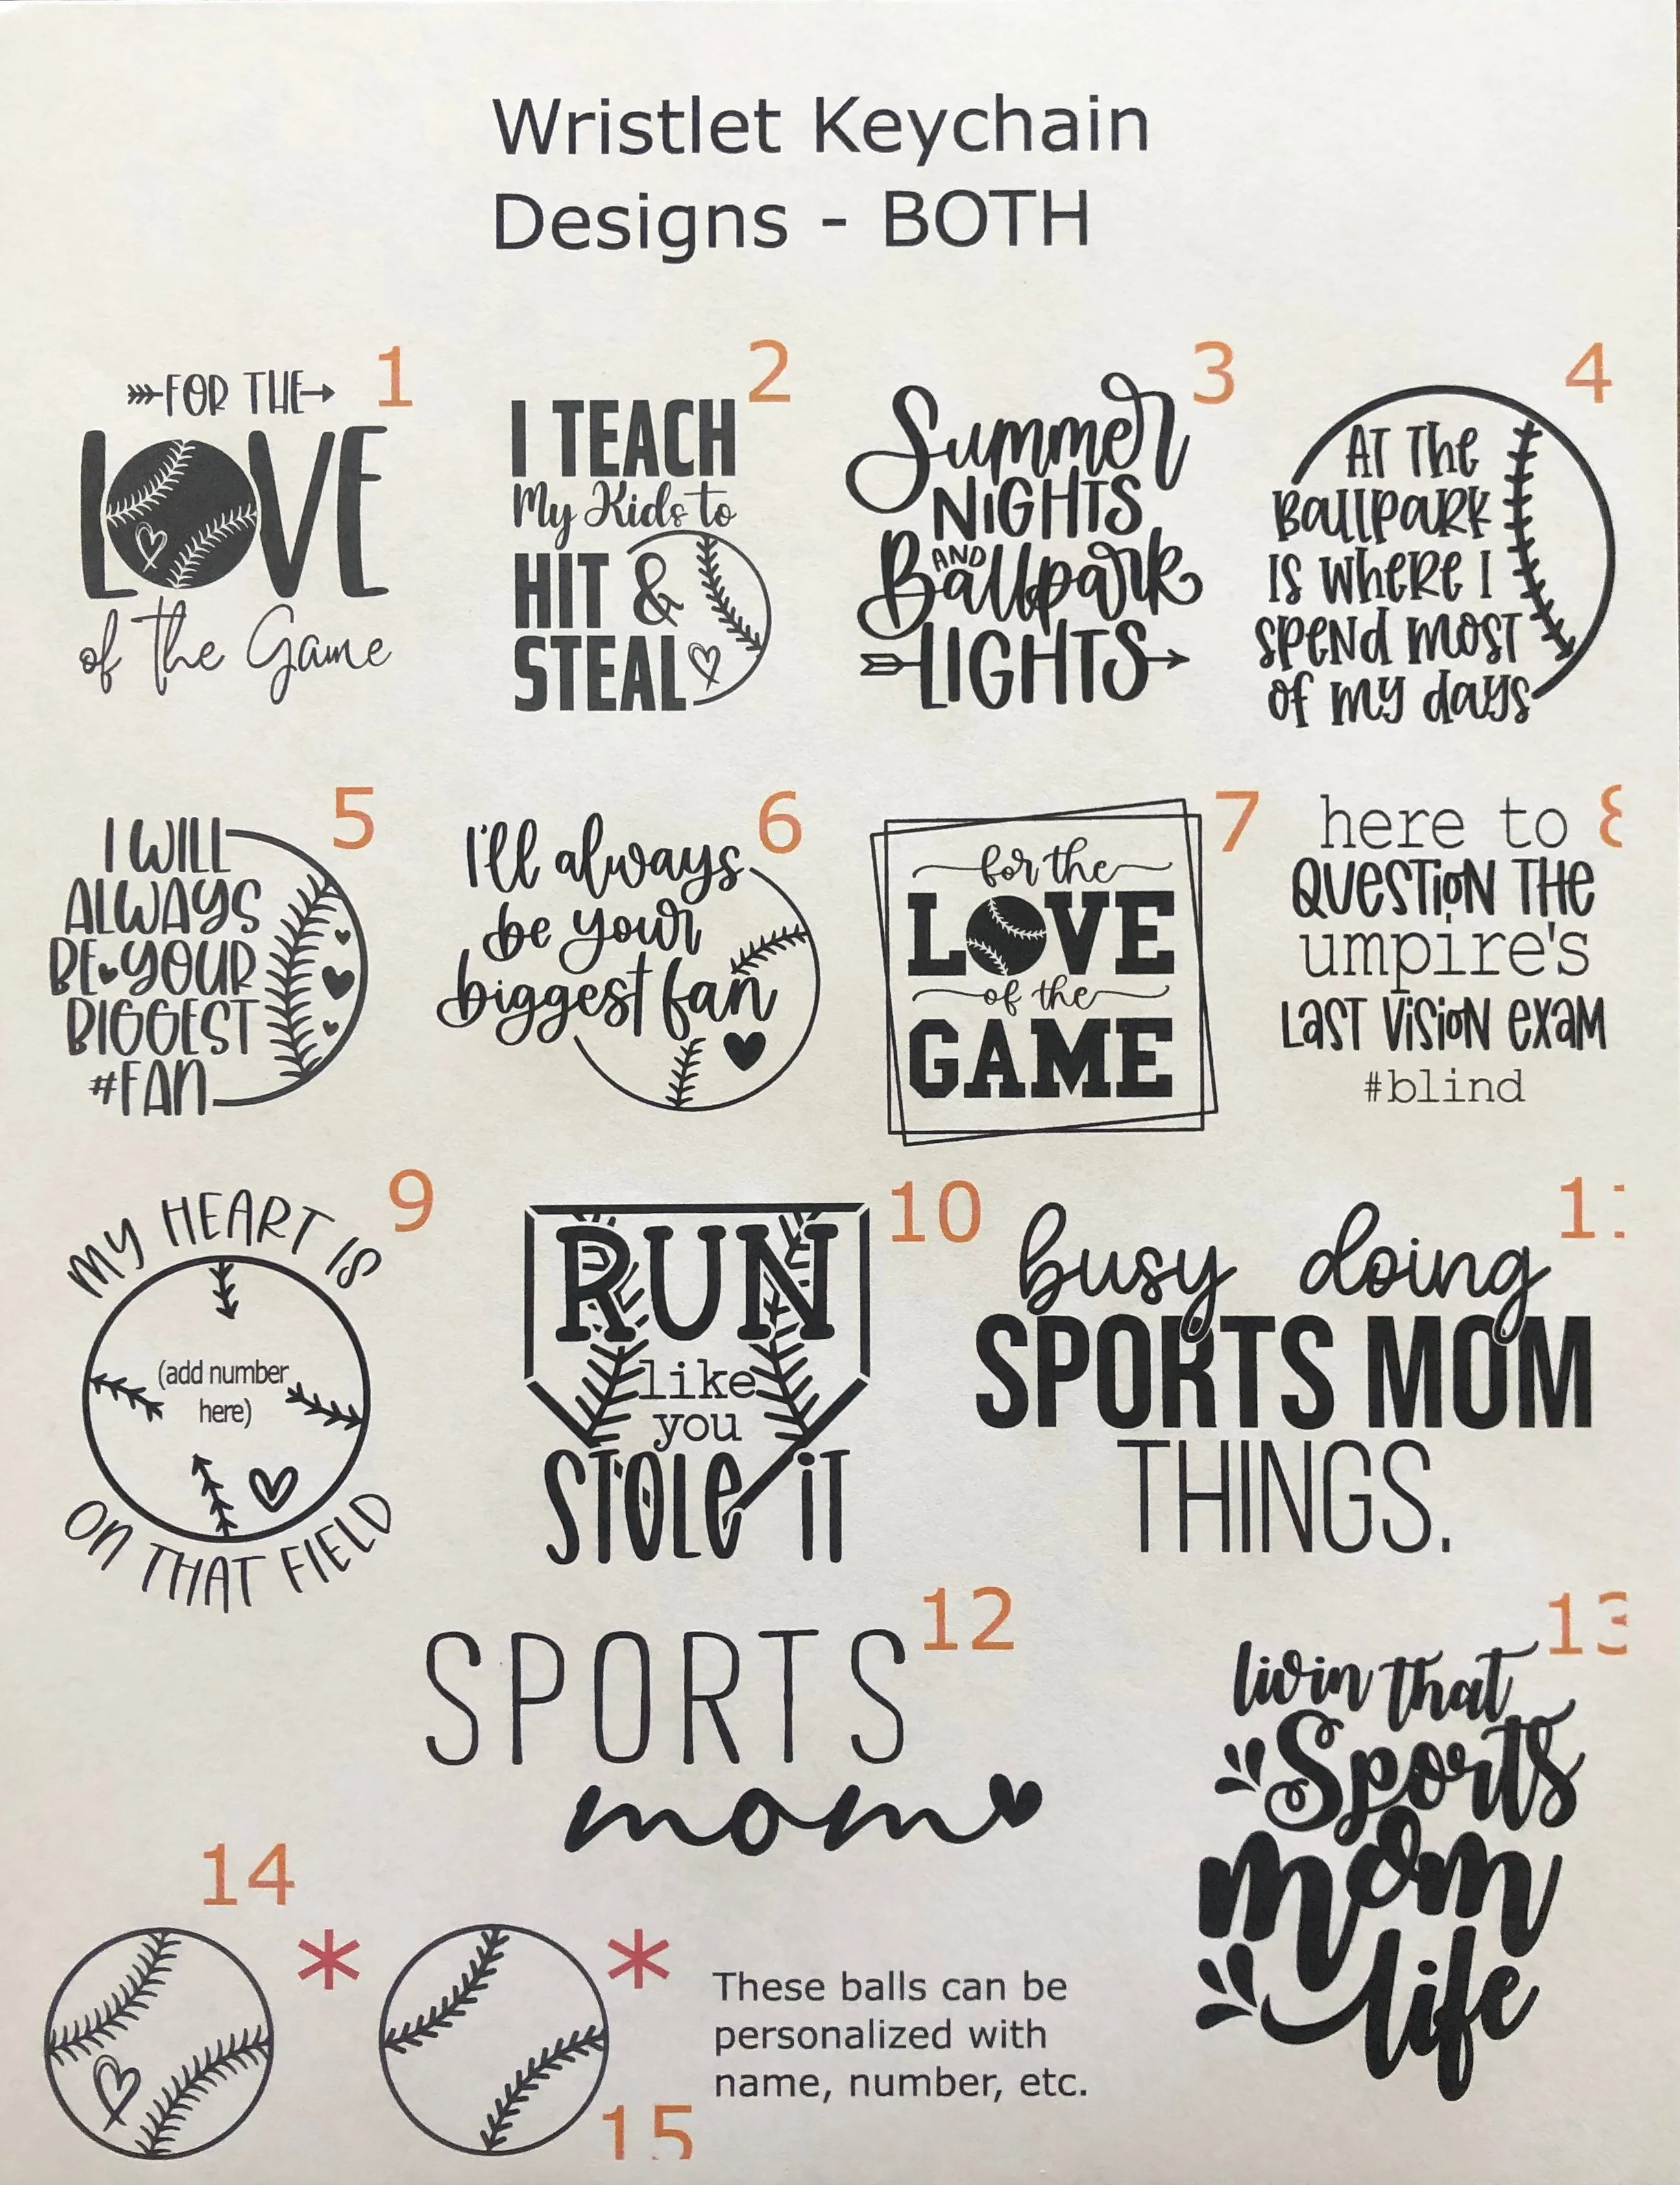 Wristlet Keychain
Designs - BOTH
1
FOR THE
LOVE
of the Game
2
I TEACH
My Kids to
HIT &
STEAL
3
Summer
NIGHTS
AND
Ballpark
LIGHTS
4
AT The
BallpaRK
IS wheRE I
SpeNd MOST
of my days
5
I WILL
ALWAYS
BE YOUR
BIGGEST
#FAN
6
I'll always
be your
biggest fan
7
for the
LOVE
of the
GAME
8
here to
QUESTioN THe
umpire's
LaST ViSioN eXaM
#blind
9
MY HEART IS
(add number
here)
ON THAT FIELD
10
RUN
like
you
STOLe iT
busy doing
SPORTS MOM
THINGS.
12
SPORTS
mom
13
livin that
Sports
mom
life
14
* *
These balls can be
personalized with
name, number, etc.
15